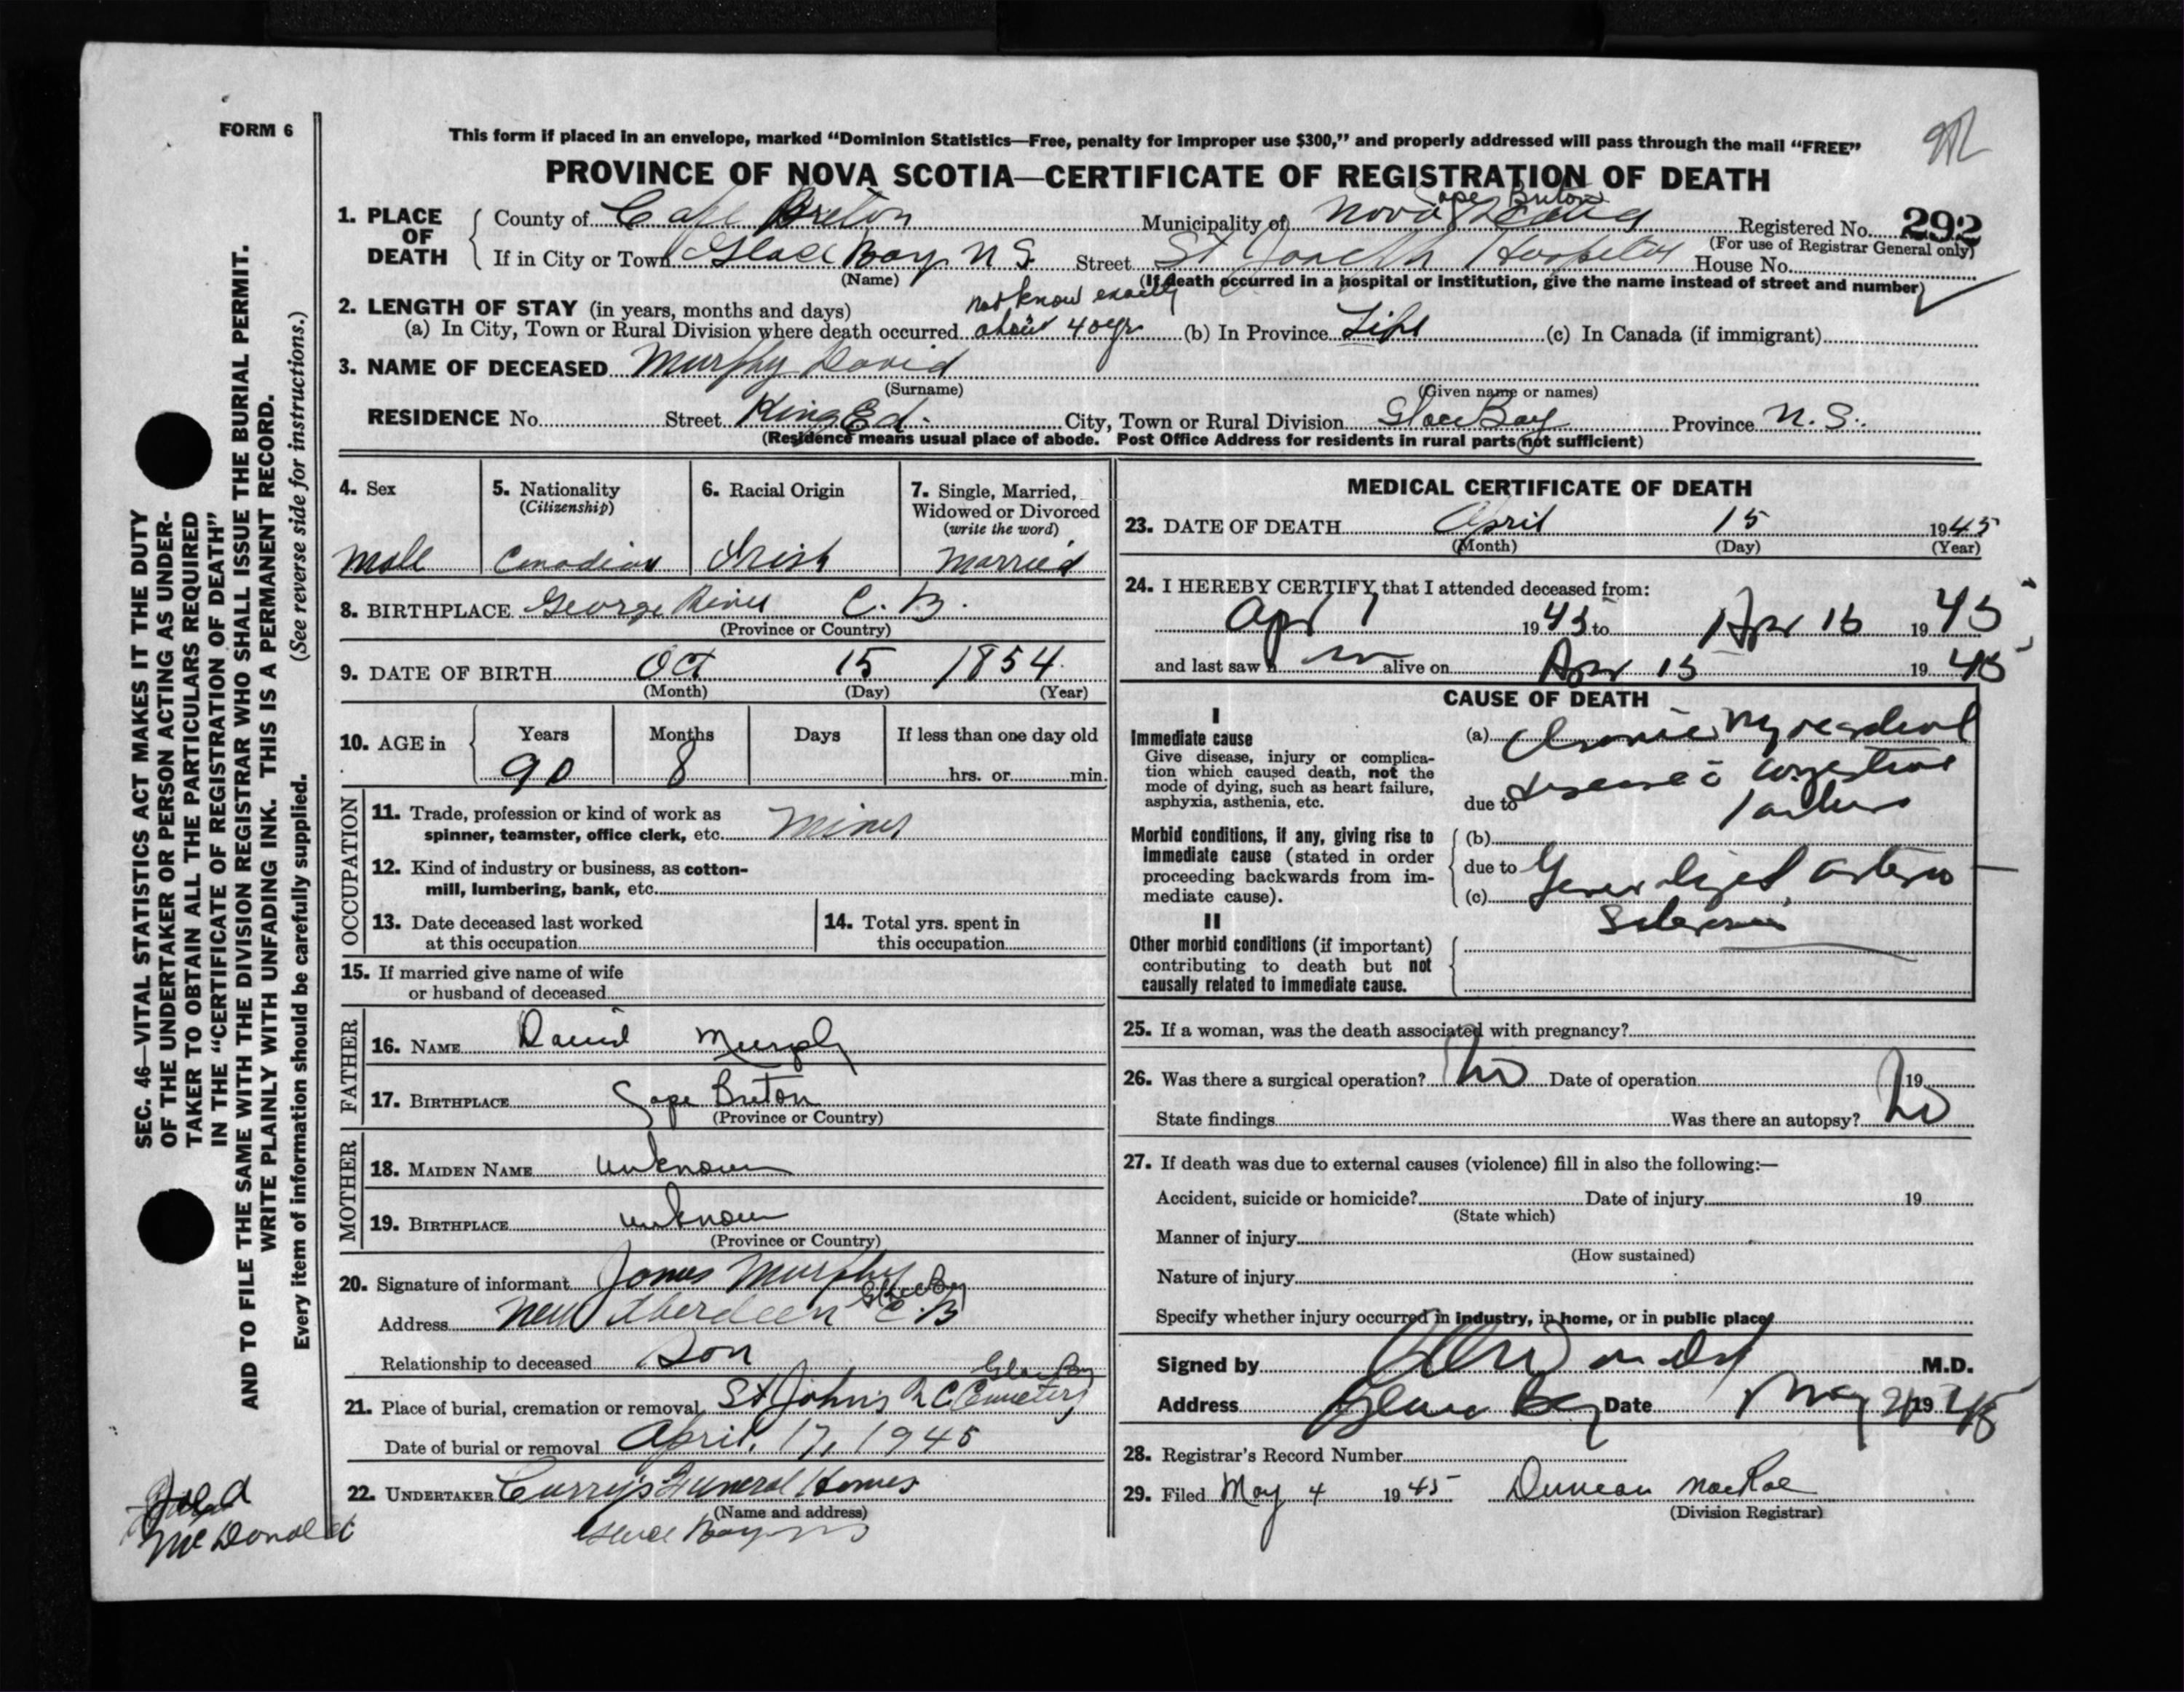 FORM 6
This form if placed in an envelope, marked “Dominion Statistics—Free, penalty for improper use $300,” and properly addressed will pass through the mail “FREE”
PROVINCE OF NOVA SCOTIA—CERTIFICATE OF REGISTRATION OF DEATH
1. PLACE OF DEATH
County of Cape Breton Municipality of Nova Scotia Cape Breton Registered No. 292
(For use of Registrar General only)
If in City or Town Glace Bay N S. Street St Joseph Hospital House No.
(Name) (If death occurred in a hospital or institution, give the name instead of street and number)
2. LENGTH OF STAY (in years, months and days) not know exactly
(a) In City, Town or Rural Division where death occurred about 40 yr (b) In Province Life (c) In Canada (if immigrant)
3. NAME OF DECEASED Murphy David
(Surname) (Given name or names)
RESIDENCE No. Street King Ed. City, Town or Rural Division Glace Bay Province N. S.
(Residence means usual place of abode. Post Office Address for residents in rural parts not sufficient)
4. Sex
Male
5. Nationality
(Citizenship)
Canadian
6. Racial Origin
Irish
7. Single, Married,
Widowed or Divorced
(write the word)
Married
8. BIRTHPLACE George River C. B.
(Province or Country)
9. DATE OF BIRTH Oct 15 1854
(Month) (Day) (Year)
10. AGE in Years Months Days If less than one day old
90 8 hrs. or min.
OCCUPATION
11. Trade, profession or kind of work as
spinner, teamster, office clerk, etc. Miner
12. Kind of industry or business, as cotton-
mill, lumbering, bank, etc.
13. Date deceased last worked
at this occupation
14. Total yrs. spent in
this occupation
15. If married give name of wife
or husband of deceased
FATHER
16. NAME David Murphy
17. BIRTHPLACE Cape Breton
(Province or Country)
MOTHER
18. MAIDEN NAME unknown
19. BIRTHPLACE unknown
(Province or Country)
20. Signature of informant James Murphy
Glace Bay
Address New Aberdeen C. B
Relationship to deceased Son
Glace Bay
21. Place of burial, cremation or removal St John's R C Cemetery
Date of burial or removal April, 17, 1945
22. UNDERTAKER Curry's Funeral Homes
(Name and address)
Glace Bay NS
MEDICAL CERTIFICATE OF DEATH
23. DATE OF DEATH April 15 1945
(Month) (Day) (Year)
24. I HEREBY CERTIFY that I attended deceased from:
Apr 1 1945 to Apr 15 1945
and last saw h im alive on Apr 15 1945
CAUSE OF DEATH
I
Immediate cause
Give disease, injury or complica-
tion which caused death, not the
mode of dying, such as heart failure,
asphyxia, asthenia, etc.
(a) Chronic Myocardial
due to disease c̄ congestive
failure
Morbid conditions, if any, giving rise to
immediate cause (stated in order
proceeding backwards from im-
mediate cause).
(b)
due to Generalized arterio
(c) Sclerosis
II
Other morbid conditions (if important)
contributing to death but not
causally related to immediate cause.
25. If a woman, was the death associated with pregnancy?
26. Was there a surgical operation? No Date of operation 19
State findings Was there an autopsy? No
27. If death was due to external causes (violence) fill in also the following:—
Accident, suicide or homicide? Date of injury 19
(State which)
Manner of injury
(How sustained)
Nature of injury
Specify whether injury occurred in industry, in home, or in public place
Signed by M.D.
Address Glace Bay Date May 2 1945
28. Registrar's Record Number
29. Filed May 4 1945 Duncan MacRae
(Division Registrar)
SEC. 46—VITAL STATISTICS ACT MAKES IT THE DUTY
OF THE UNDERTAKER OR PERSON ACTING AS UNDER-
TAKER TO OBTAIN ALL THE PARTICULARS REQUIRED
IN THE “CERTIFICATE OF REGISTRATION OF DEATH”
AND TO FILE THE SAME WITH THE DIVISION REGISTRAR WHO SHALL ISSUE THE BURIAL PERMIT.
WRITE PLAINLY WITH UNFADING INK. THIS IS A PERMANENT RECORD.
Every item of information should be carefully supplied. (See reverse side for instructions.)
McDonald